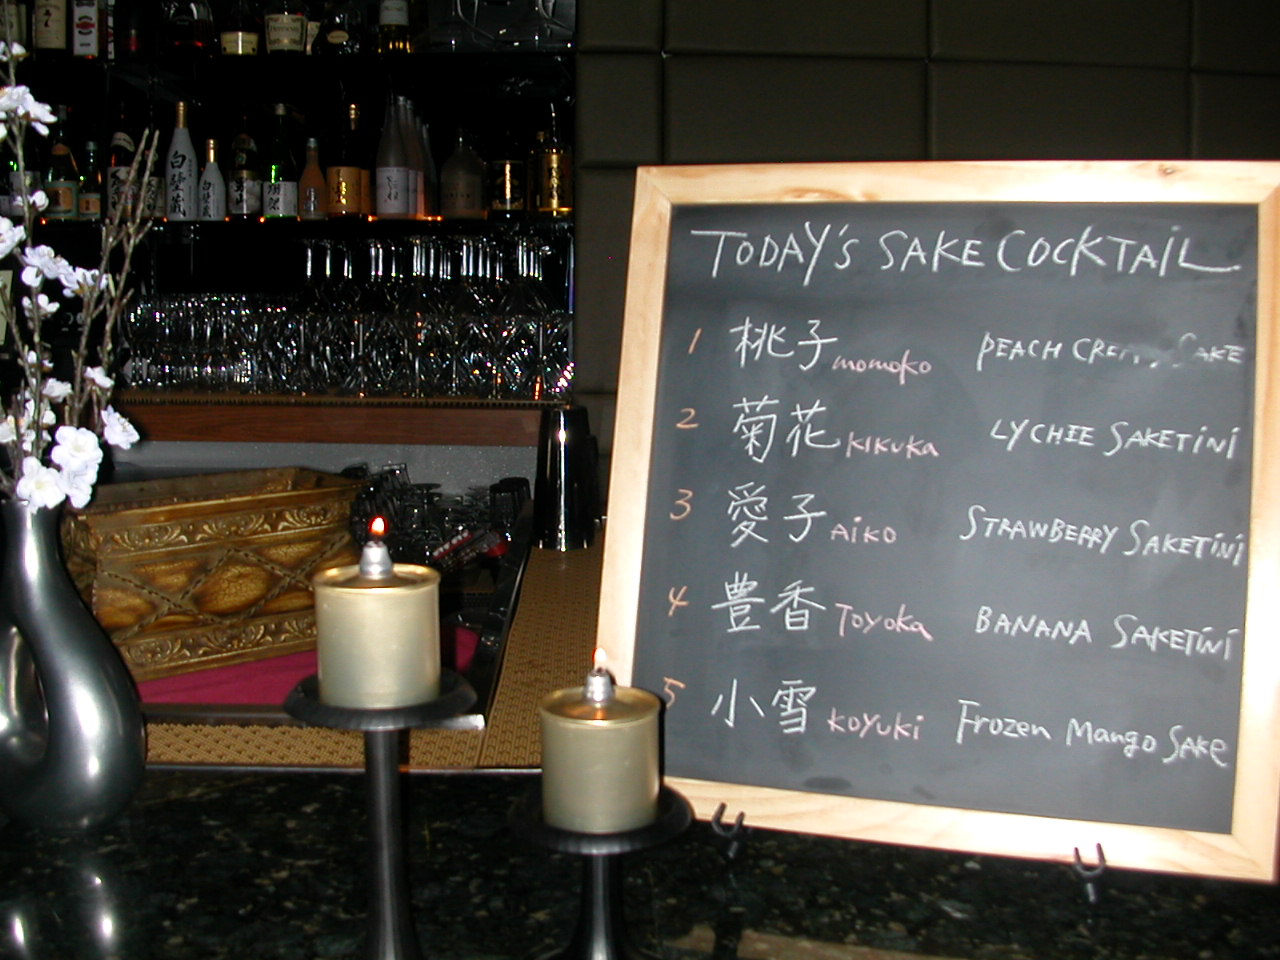 白壁蔵
白壁蔵
TODAY'S SAKE COCKTAIL
1 桃子 momoko PEACH SAKE
2 菊花 KIKUKA LYCHIE SAKETINI
3 愛子 AIKO STRAWBERRY SAKETINI
4 豊香 TOYOKA BANANA SAKETINI
5 小雪 KOYUKI Frozen Mango SAKe